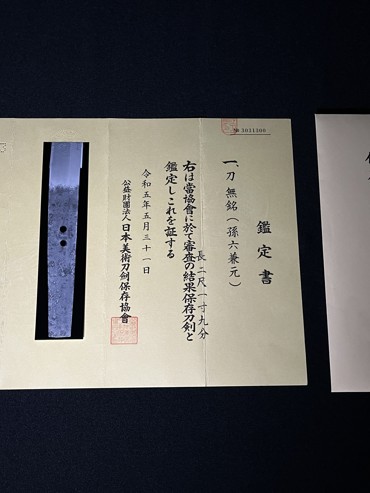 鑑定書
№ 3011300
一、刀 無銘（孫六兼元）
長 二尺一寸九分
右は當協會に於て審査の結果保存刀剣と
鑑定しこれを証する
令和五年五月三十一日
公益財團法人 日本美術刀劍保存協會